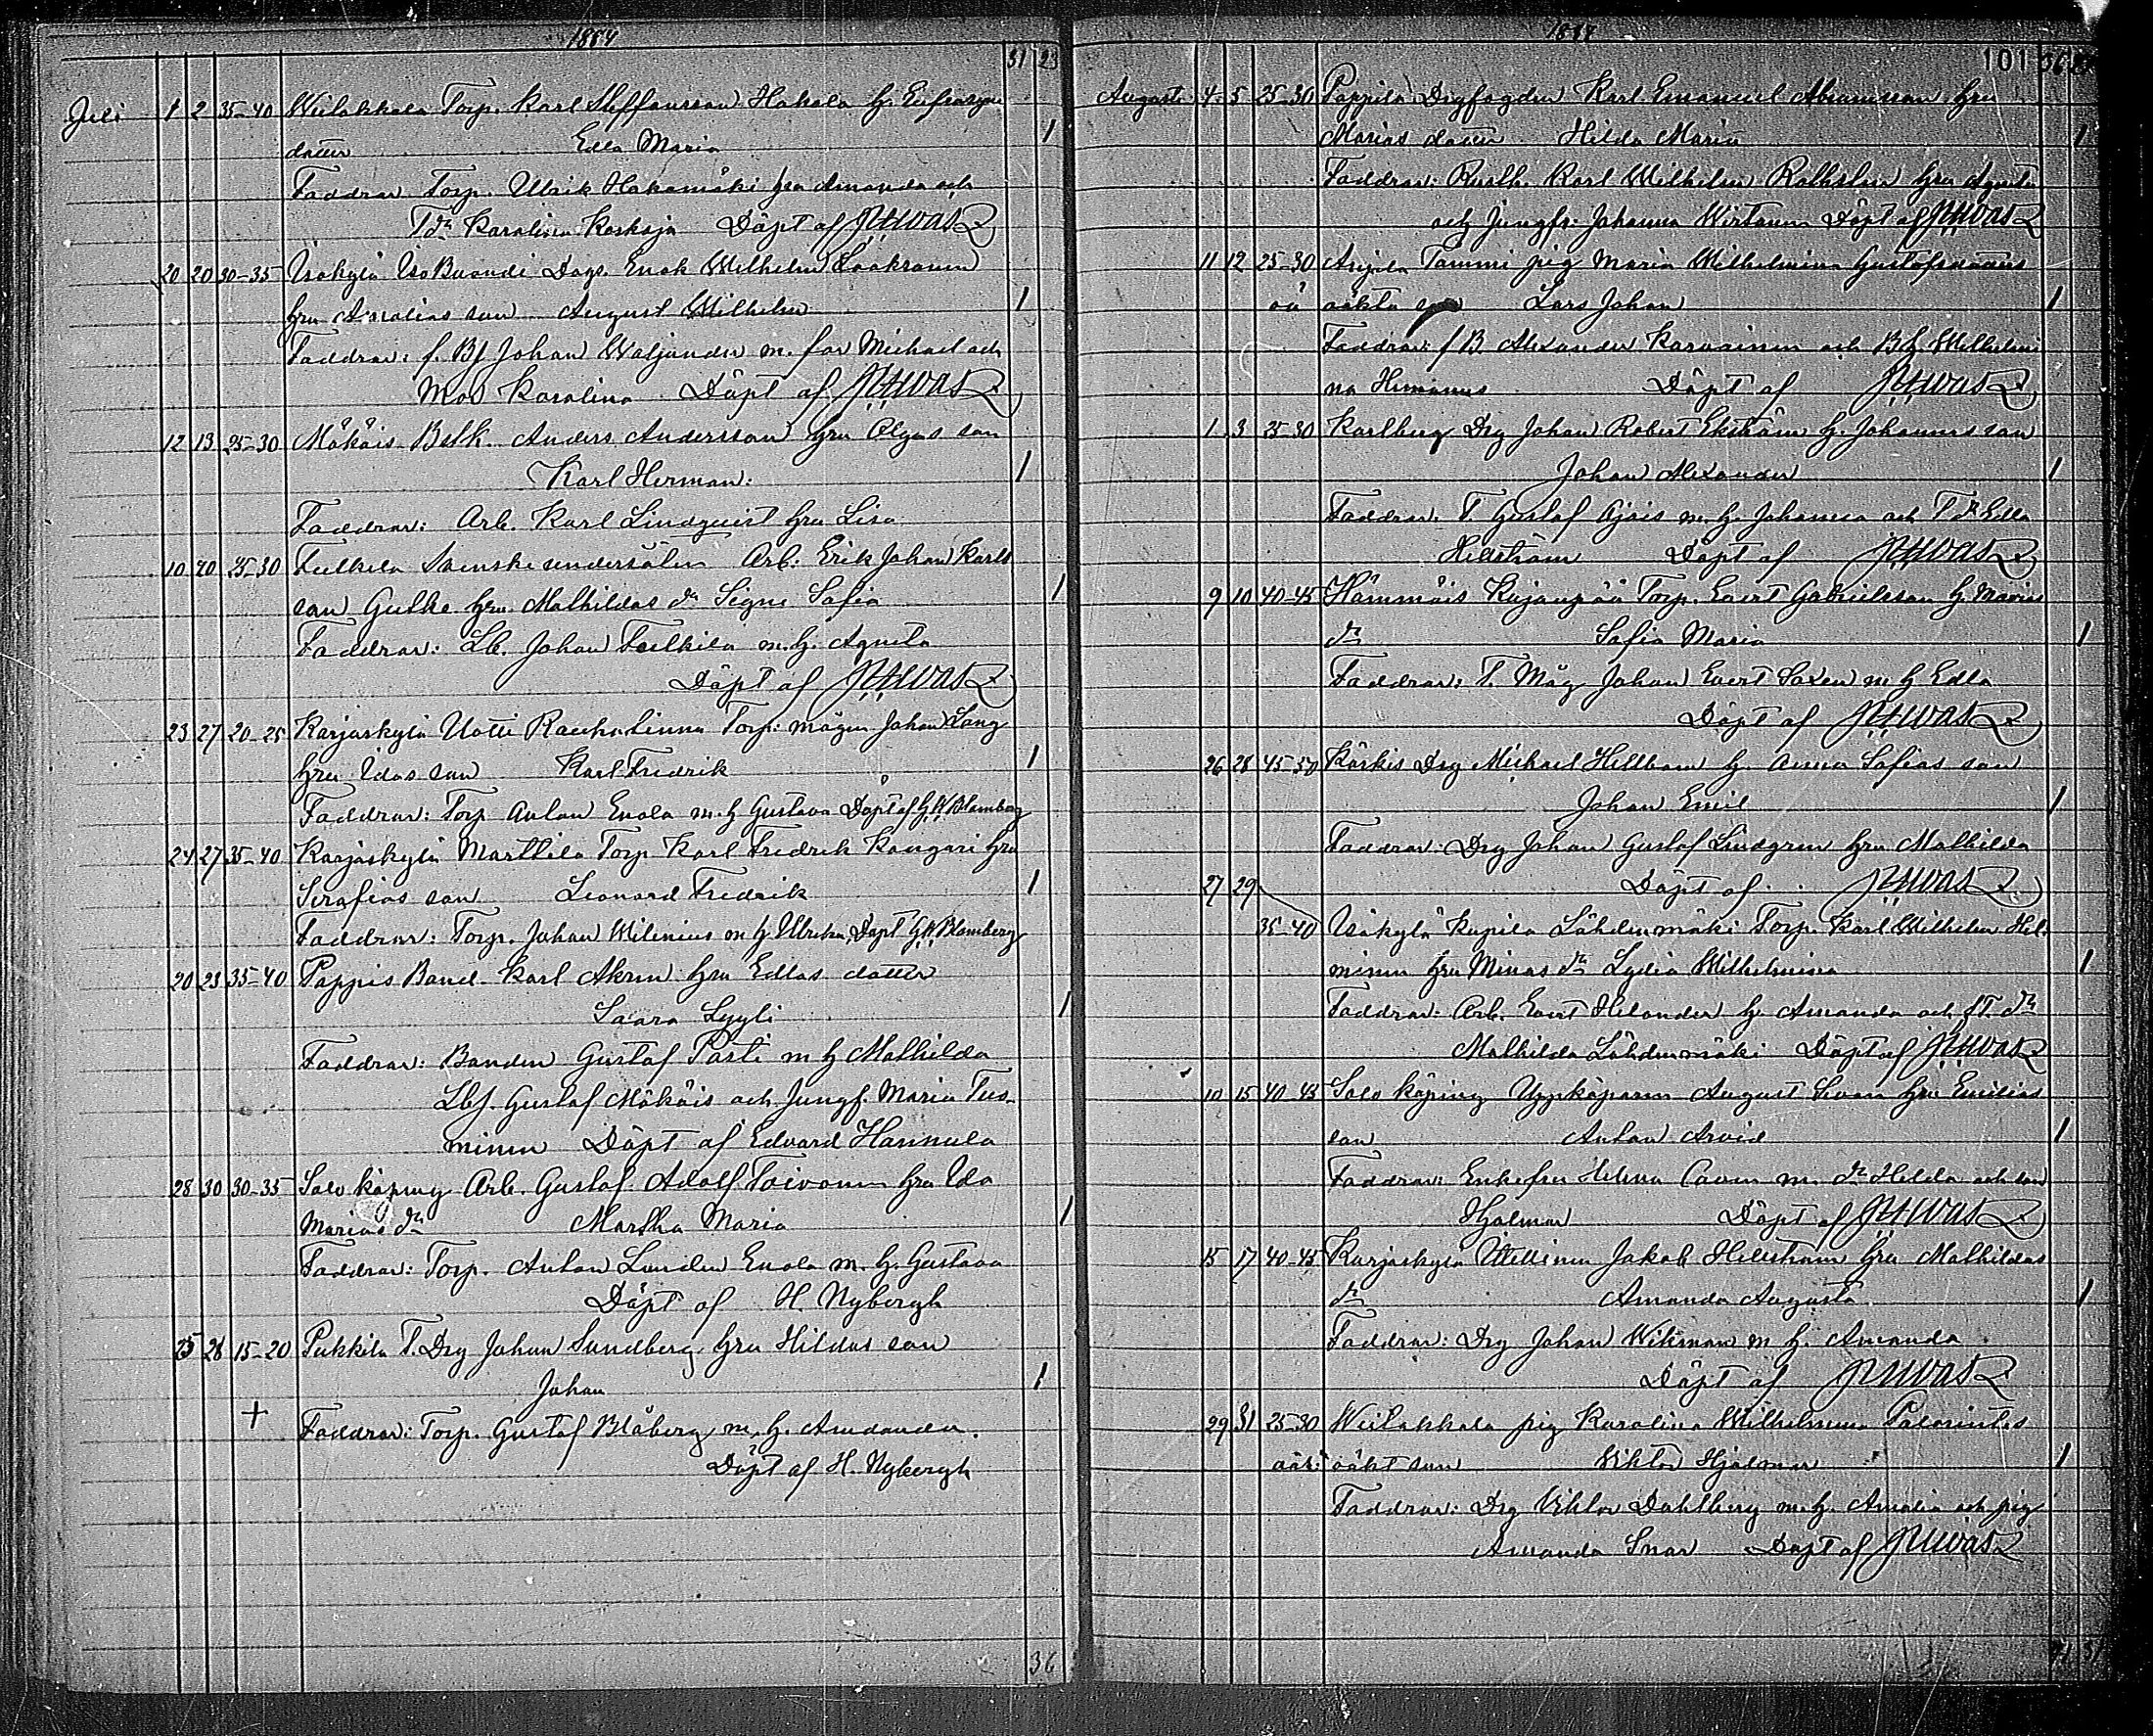 1884
31 23
Juli 1 2 35-40 Wiilakkala Torp. Karl Steffansson Hakala h. Eufrosyne
datter Edla Maria 1
Faddrar Torp. Ulrik Hakamäki hru Amanda och
Tdr Karolina Koskoja Döpt af
20 20 30-35 Isokylä IsoBuondi Dags. Enok Wilhelm Laaksonen
hru Amalias son August Wilhelm 1
Faddrar: f. Bf Johan Waljander m. far Michael och
mod Karolina Döpt af
12 13 25-30 Mökäis Bstk. Anders Andersson hru Olgas son
Karl Herman: 1
Faddrar: Arb. Karl Lindquist hru Lisa
10 20 25-30 Fulkila Svenske undersåten Arb. Erik Johan Karls
son Gulke hru Mathildas dr Signe Sofia 1
Faddrar: Lb. Johan Fulkila m. h. Agneta
Döpt af
23 27 20-25 Karjaskylä Uotti Rauhalinna Torp. mågen Johan Lang
hru Idas son Karl Fredrik 1
Faddrar: Torp Anton Enola m. h Gustava Döpt af G W Blomberg
24 27 35-40 Karjaskylä Marttila Torp Karl Fredrik Kangari hru
Serafias son Leonard Fredrik 1
Faddrar: Torp. Johan Milenius m h. Ulrika, Döpt G W Blomberg
20 23 35-40 Pappis Bond. Karl Akren hru Edlas datter
Saara Lyyli 1
Faddrar: Bonden Gustaf Pasti m h Mathilda
Lbf. Gustaf Mökäis och Jungf. Maria Tuo-
minen Döpt af Edvard Hannula
28 30 30-35 Salo köping Arb. Gustaf Adolf Toivonen hru Ida
Marias dr Martha Maria 1
Faddrar: Torp. Anton Lunden Enola m. h. Gustava
Döpt af H. Nybergh
25 28 15-20 Pukkila T. Drg Johan Sundberg hru Hildas son
Johan 1
+ Faddrar: Torp. Gustaf Blåberg m. h. Amanda.
Döpt af H. Nybergh
36
1884
101 36
Augusti 4 5 25-30 Pappila Drgfogden Karl Emanuel Abramsson hru
Marias datter Hilda Maria 1
Faddrar: Rusth. Karl Wilhelm Rolhelm hru Agneta
och Jungfr. Johanna Wirtanen Döpt af
11 12 25-30 Anjala Tammi pig Maria Wilhelmina Gustafsdotters
oä oäkta son Lars Johan 1
Faddrar: f B. Alexander Karvainen och Bh. Wilhelmi
na Döpt af
1 3 25-30 Karlberg Drg Johan Robert Ekström h. Johannas son
Johan Alexander 1
Faddrar. T. Gustaf Ajais m. h. Johanna och T dr Edla
Hellström Döpt af
9 10 40-45 Hämmäis Kujanpää Torp. Evert Gabrielsson h. Marias
dr Sofia Maria 1
Faddrar: T. Måg Johan Evert Saxen m h Edla
Döpt af
26 28 45-50 Kärkis Drg Michael Hellbom h. Anna Sofias son
Johan Emil 1
Faddrar: Drg Johan Gustaf Lindgren hru Mathilda
27 29 Döpt af
35-40 Isokylä Kupila Lähdenmäki Torp. Karl Wilhelm Hel-
minen hru Minas dr Lydia Wilhelmina 1
Faddrar: Arb. Evert Helander h. Amanda och T. dr
Mathilda Lähdenmäki Döpt af
10 15 40-45 Salo köping Uppköparen August hru Emilias
son Anton Arvid 1
Faddrar: Enkefru Helena m. dr Hilda och son
Hjalmar Döpt af
15 17 40-45 Karjaskylä Jakob Hellström hru Mathildas
dr Amanda Augusta 1
Faddrar: Drg Johan Wikman m h. Amanda
Döpt af
29 31 25-30 Wiilakkala pig Karolina Wilhelmina
oäkt son Viktor Hjalmar 1
Faddrar: Drg Viktor Dahlberg m. h. Amalia och pig
Amanda Snar Döpt af